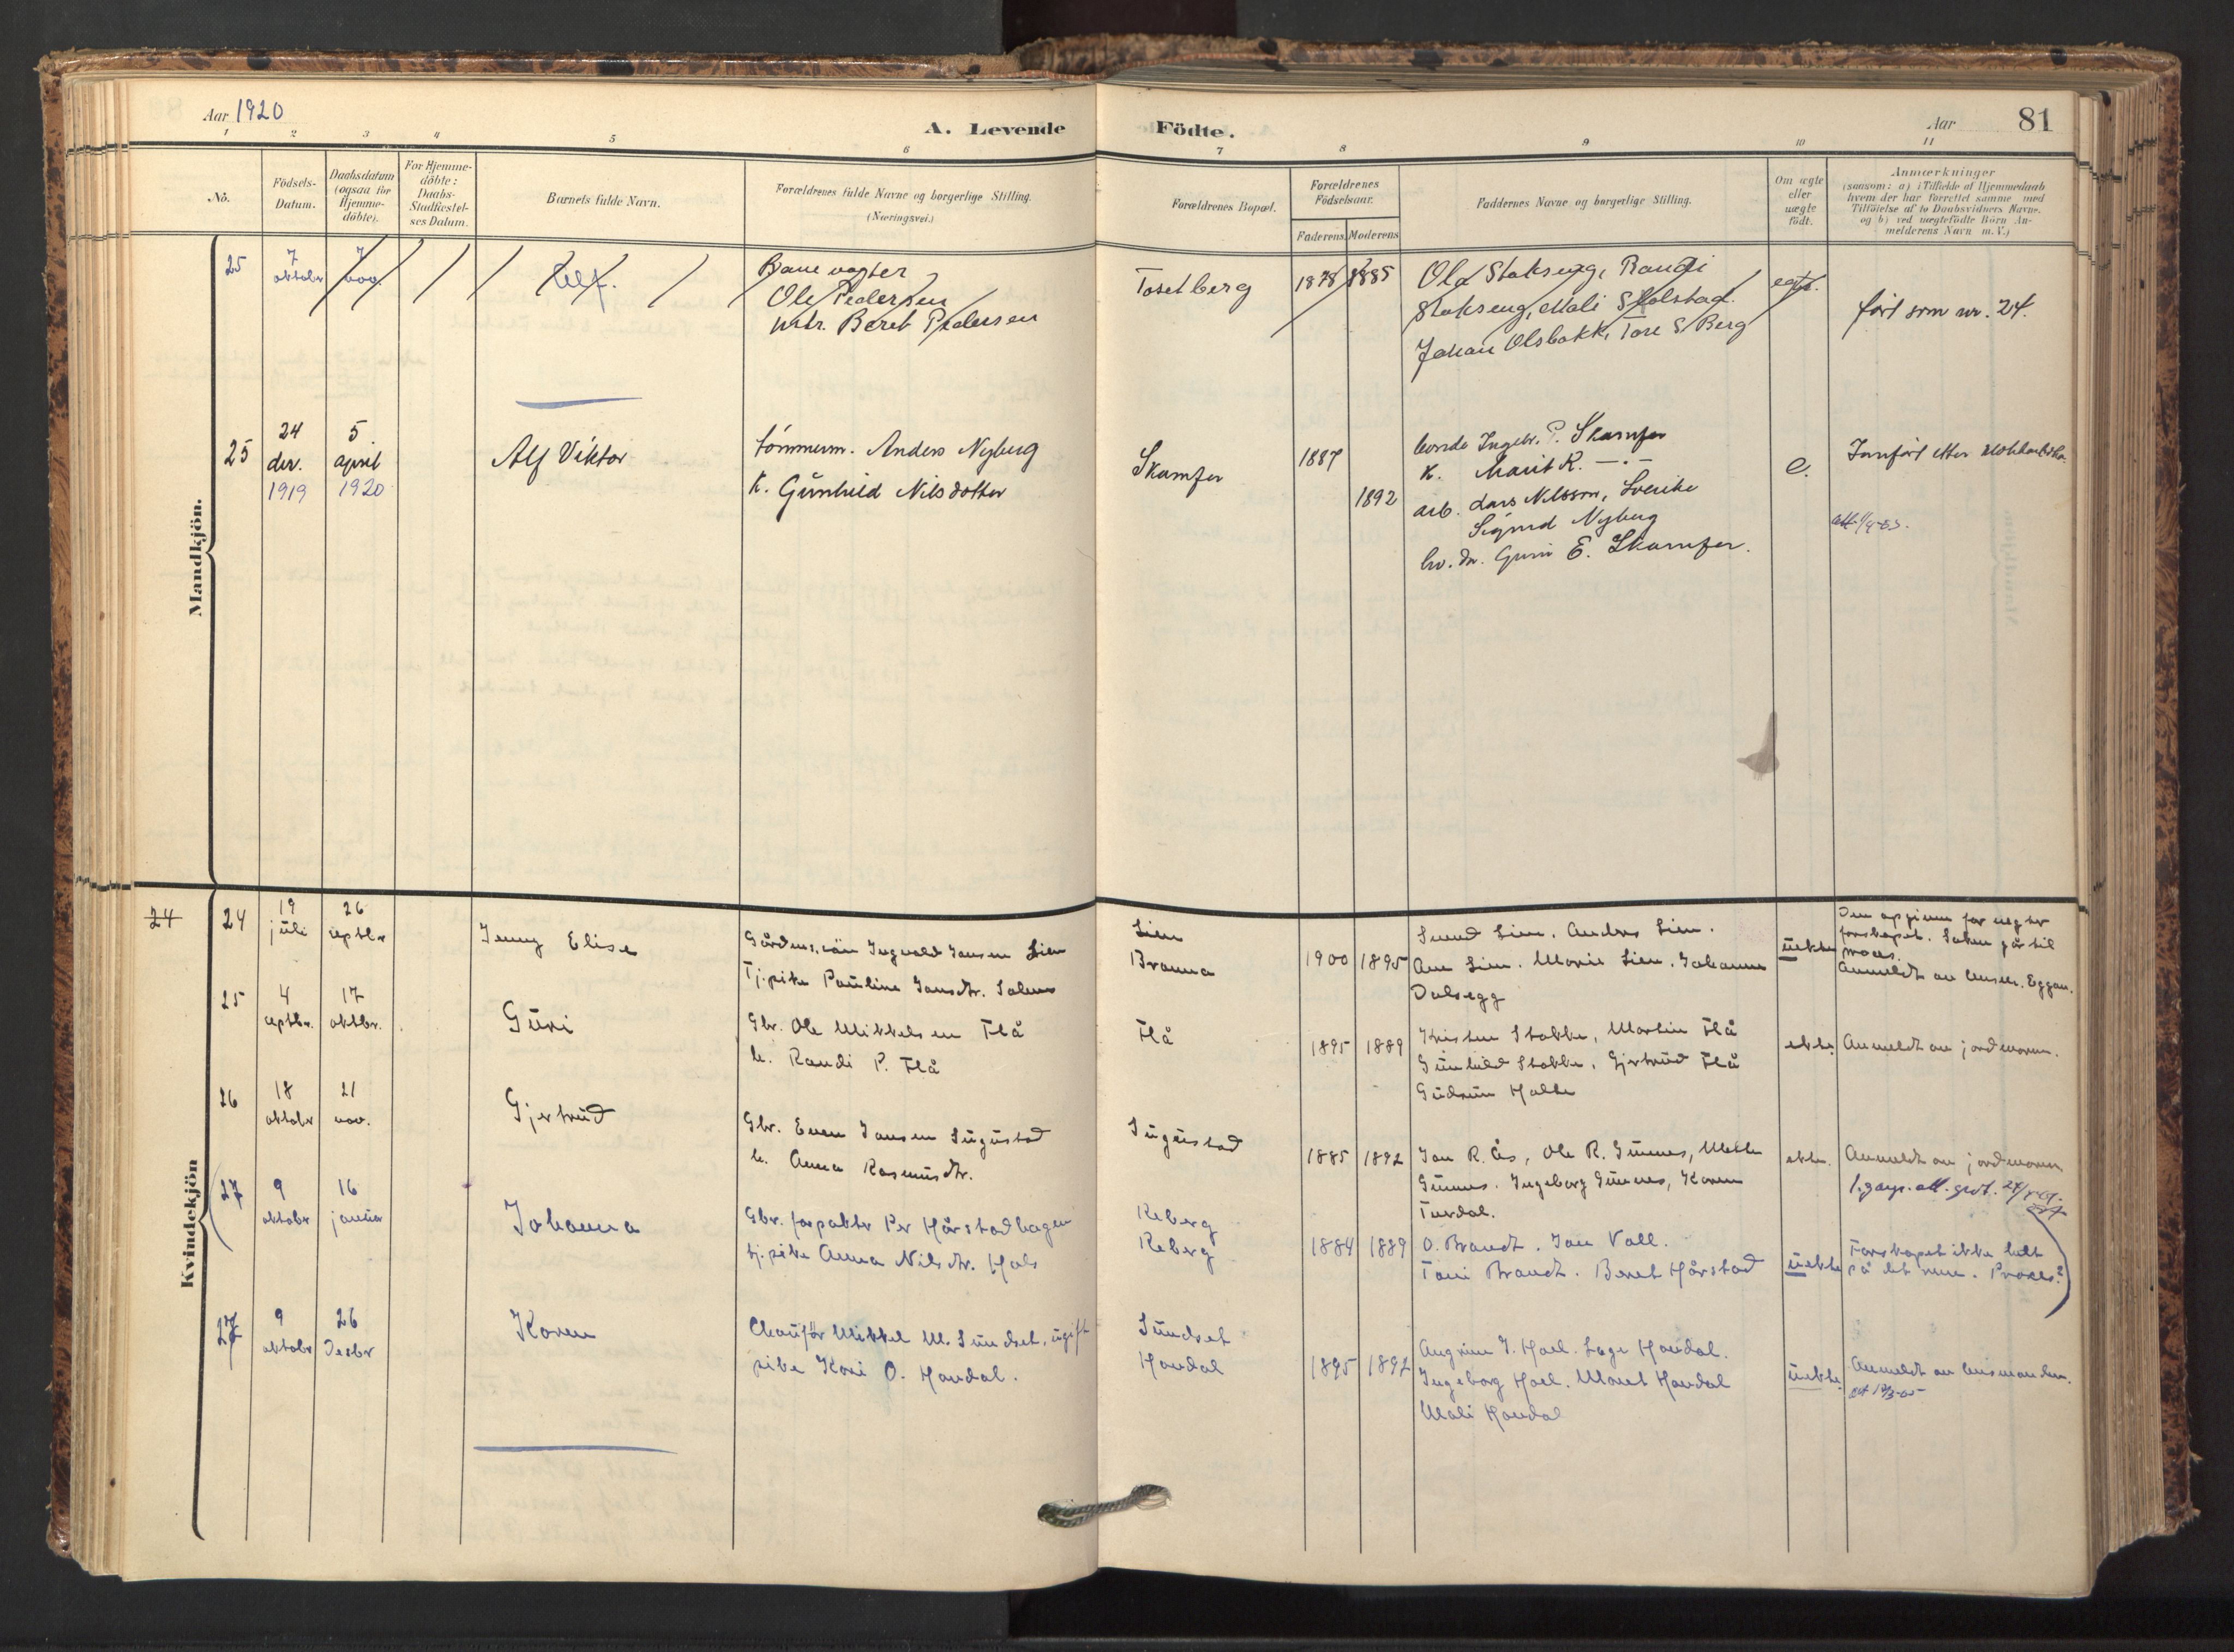 Aar 1920
A. Levende
Födte.
Aar
81
1 2 3 4 5 6 7 8 9 10 11
No.
Födsels-
Datum.
Daabsdatum
(ogsaa for
Hjemme-
döbte).
For Hjemme-
döbte:
Daabs-
Stadfæstel-
ses Datum.
Barnets fulde Navn.
Forældrenes fulde Navne og borgerlige Stilling.
(Næringsvei.)
Forældrenes Bopæl.
Forældrenes
Födselsaar.
Faderens. Moderens
Faddernes Navne og borgerlige Stilling.
Om ægte
eller
uægte
födt.
Anmærkninger
(saasom: a) i Tilfælde af Hjemmedaab
hvem der har forrettet samme med
Tilföielse af to Daabsvidners Navne.
og b) ved uægtefödte Börn An-
melderens Navn m. V.)
Mandkjön.
25
7
oktober
7
nov.
Banevogter
Ole Pedersen
Beret Pedersen
Tosetberg
1878 1885
Ola Stokseng, Randi
Stokseng, Mali Stolstad.
Johan Olsbakk, Tore S. Berg
egte.
ført som nr. 24.
25
24
des.
1919
5.
april
1920
Alf Viktor
tømmerm. Anders Nyberg
K. Gunhild Nilsdotter
Skamfer
1887
1892
bonde Ingebr. P. Skamfer
K. Marit K. — · —
arb. Lars Nilsson, Sverike
Sigurd Nyberg
Guri E. Skamfer.
e.
Innført etter
Kvindekjön
24
24
19
juli
26
septbr
Jenny Elise
Gårdms. sön Ingvald Jansen Lien
Tj.pike Pauline Jansdtr.
Lien
Brauna
1900 1895
Lien. Anders Lien.
Ane Lien. Marie Lien. Johanna
Dalsegg
üekte
Den opgivne far negter
farskapet. Saken går til
proces.
Anmeldt av Eggan.
25
4
septbr.
17
oktbr.
Güri
Gbr. Ole Mikkelsen Flå
h. Randi P. Flå
Flå
1895 1889
Kristen Stokke, Martin Flå
Günhild Stokke, Gjertrüd Flå
Güdrün
ekte.
Anmeldt av jordmoren.
26
18
oktober
21
nov.
Gjertrüd
Gbr. Even Jansen
h. Anna Rasmüsdtr.
1885 1892
Jan R. Ås, Ole R.
Ingeborg
ekte.
Anmeldt av jordmoren
27
9
oktober
16
janüar
Johanna
Gbr. forpakter Per Hårstadhagen
tj.pike Anna Nilsdtr. Hals
Reberg
Reberg
1884 1889
O. Brandt. Jan Voll.
Brandt. Beret Hårstad
üekte
Farskapet ikke helt
på det rene. Proces?
27
9
oktober
26
Desbr
Karen
Chaüför Mikkel M. Sündset, ügift
pike Kari O. Haudal.
Sündset
Haudal
1895 1892
Haudal.
Ingeborg Marit Haudal
Mali Haudal
üekte.
Anmeldt av lensmanden.